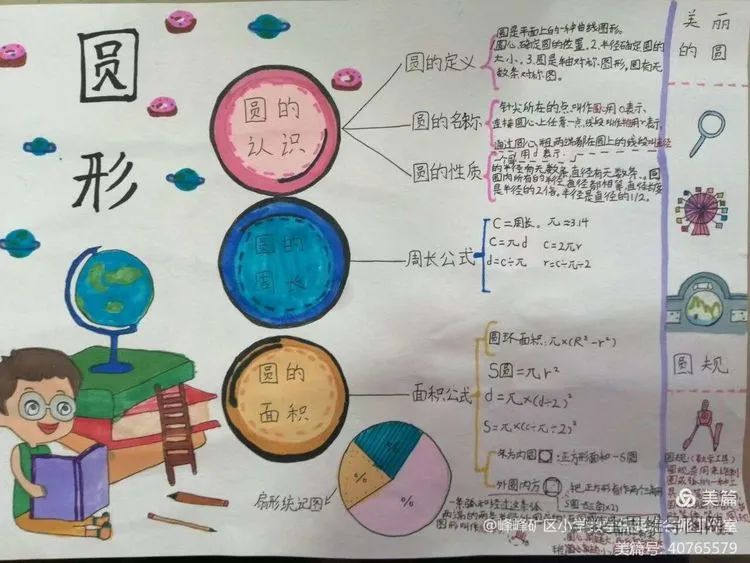 圆
形
圆的
认识
圆的定义
圆是平面上的一种曲线图形。
圆心确定圆的位置,2.半径确定圆的
大小。3.圆是轴对称图形,圆有无
数条对称图。
圆的名称
针尖所在的点叫作圆心用O表示、
连接圆心上任意一点,线段叫作半径用r表示,
通过圆心
两端都在圆上的线段叫直径
用d表示.
圆的性质
的半径有无数条直径有无数条.同
圆内所有的半径直径都相等直径长度
是半径的2倍。半径是直径的1/2。
圆的
周长
周长公式
C=周长。π≈3.14
C=πd C=2πr
d=c÷π r=c÷π÷2
圆的
面积
面积公式
圆环面积:π×(R²-r²)
S圆=πr²
d=π×(d÷2)²
S=π×(c÷π÷2)²
外方内圆 :正方形面积-S圆
外圆内方 :把正方形看作两个三角形
扇形统记图
%
%
%
美丽
的圆
圆规
圆规:(数学工具)
美篇
@峰峰矿区小学
美篇号:40765579